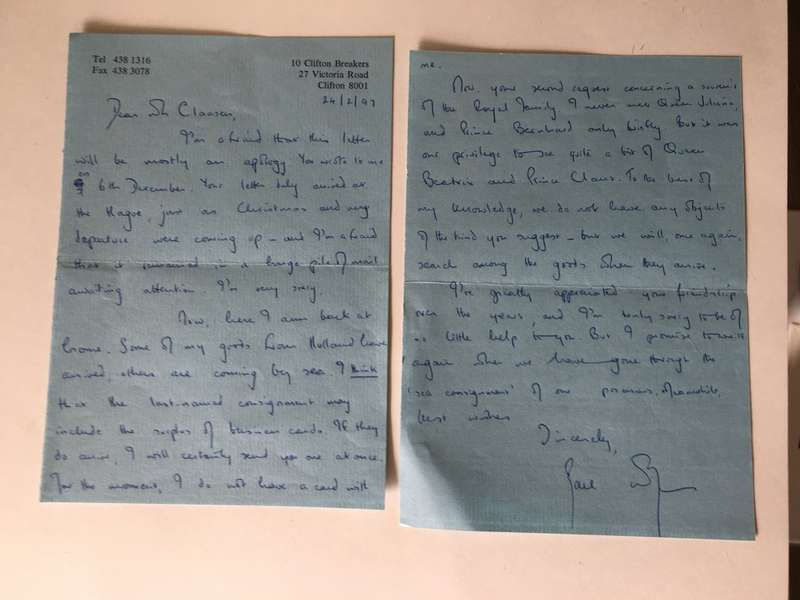 Tel 438 1316
Fax 438 3078
10 Clifton Breakers
27 Victoria Road
Clifton 8001
24/2/97
Dear Mr Claassen,
I'm afraid that this letter
will be mostly an apology. You wrote to me
on 6th December. Your letter duly arrived at
the Hague, just as Christmas and my
departure were coming up – and I'm afraid
that it remained in a huge pile of mail
awaiting attention. I'm very sorry.
Now, here I am back at
home. Some of my goods from Holland have
arrived, others are coming by sea. I think
that the last-named consignment may
include the surplus of business cards. If they
do arrive, I will certainly send you one at once.
For the moment, I do not have a card with
me.
Now, your second request concerning a souvenir
of the Royal Family. I never met Queen Juliana,
and Prince Bernhard only briefly. But it was
our privilege to see quite a bit of Queen
Beatrix and Prince Claus. To the best of
my knowledge, we do not have any objects
of the kind you suggest – but we will, once again,
search among the goods when they arrive.
I've greatly appreciated your friendship
over the years, and I'm truly sorry to be of
so little help to you. But I promise to write
again when we have gone through the
'sea consignment' of our possessions. Meanwhile,
best wishes
Sincerely,